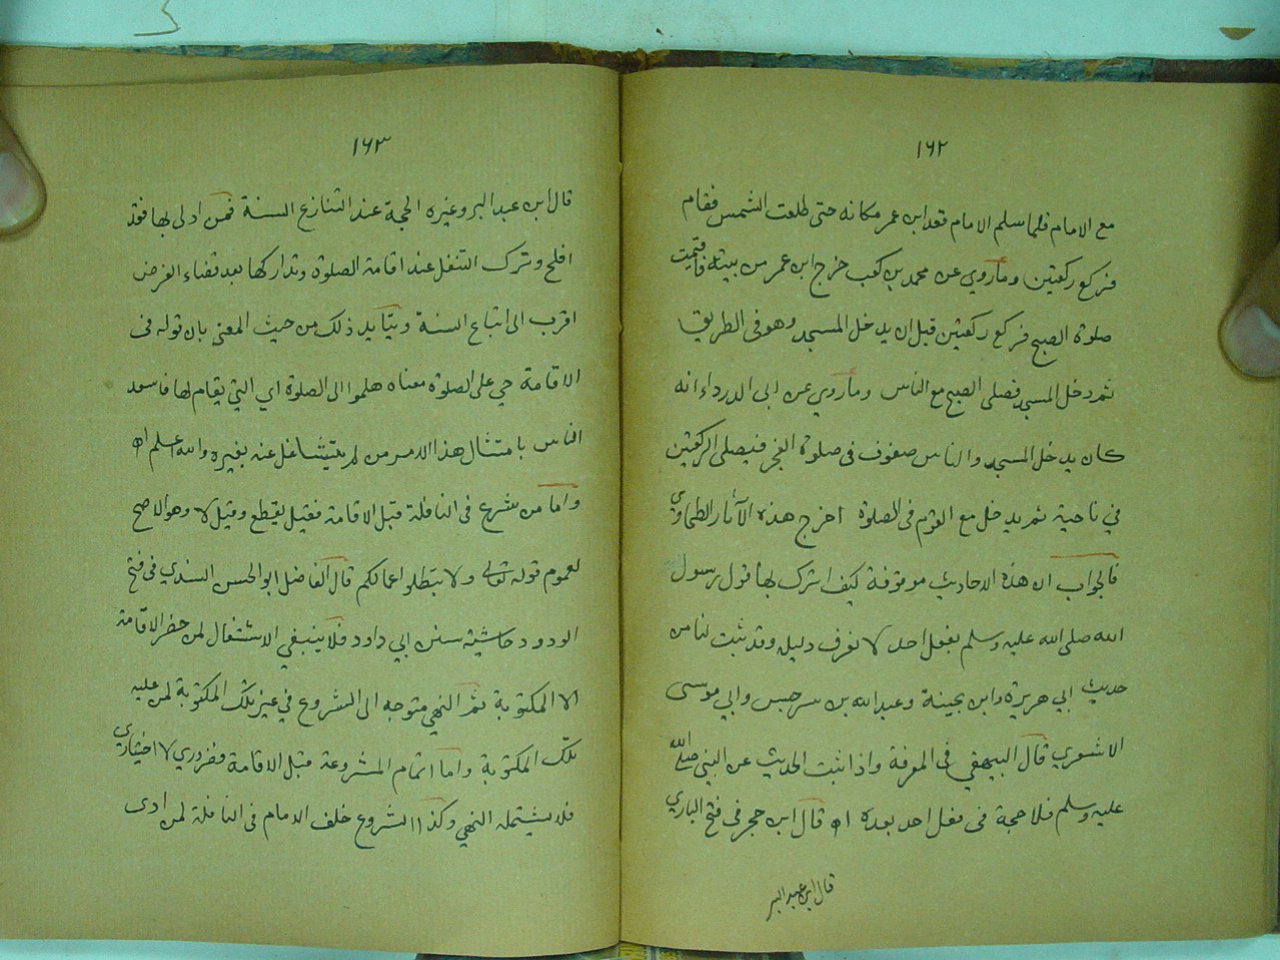 ١٦٢
مع الامام فلما سلم الامام قعد ابن عمر مكانه حتى طلعت الشمس فقام
فركع ركعتين وماروي عن محمد بن كعب خرج ابن عمر من بيته فاقيمت
صلوة الصبح فركع ركعتين قبل ان يدخل المسجد وهو فى الطريق
ثم دخل المسجد فصلى الصبح مع الناس وماروي عن ابى الدرداء انه
كان يدخل المسجد والناس صفوف فى صلوة الفجر فيصلى الركعتين
في ناحية ثم يدخل مع القوم فى الصلوة اخرج هذه الآثار الطحاوي
فالجواب ان هذه الاحاديث موقوفة كيف اترك بها قول رسول
الله صلى الله عليه وسلم بفعل احد لا نعرف دليله وقد ثبت لنا من
حديث ابي هريرة وابن بحينة وعبد الله بن سرجس وابي موسى
الاشعري قال البيهقي فى المعرفة واذا ثبت الحديث عن النبي صلى الله
عليه وسلم فلا حجة فى فعل احد بعده اه قال ابن حجر فى فتح الباري
قال ابن عبد البر
١٦٣
قال ابن عبد البر وغيره الحجة عند التنازع السنة فمن ادلى بها فقد
افلح وترك التنفل عند اقامة الصلوة وتداركها بعد قضاء الفرض
اقرب الى اتباع السنة ويتايد ذلك من حيث المعنى بان قوله فى
الاقامة حي على الصلوة معناه هلموا الى الصلوة اي التي يقام لها فاسعد
الناس بامتثال هذا الامر من لم يتشاغل عنه بغيره والله اعلم اه
واما من شرع فى النافلة قبل الاقامة فقيل يقطع وقيل لا وهو الاصح
لعموم قوله تعالى ولا تبطلوا اعمالكم قال الفاضل ابو الحسن السندي فى فتح
الودود حاشية سنن ابي داود فلا ينبغي الاشتغال لمن حضر الاقامة
الا المكتوبة ثم النهي متوجه الى الشروع في غير تلك المكتوبة لمن عليه
تلك المكتوبة واما اتمام المشروعة قبل الاقامة فضروري لا اختياري
فلا يشتمله النهي وكذا الشروع خلف الامام فى النافلة لمن ادى